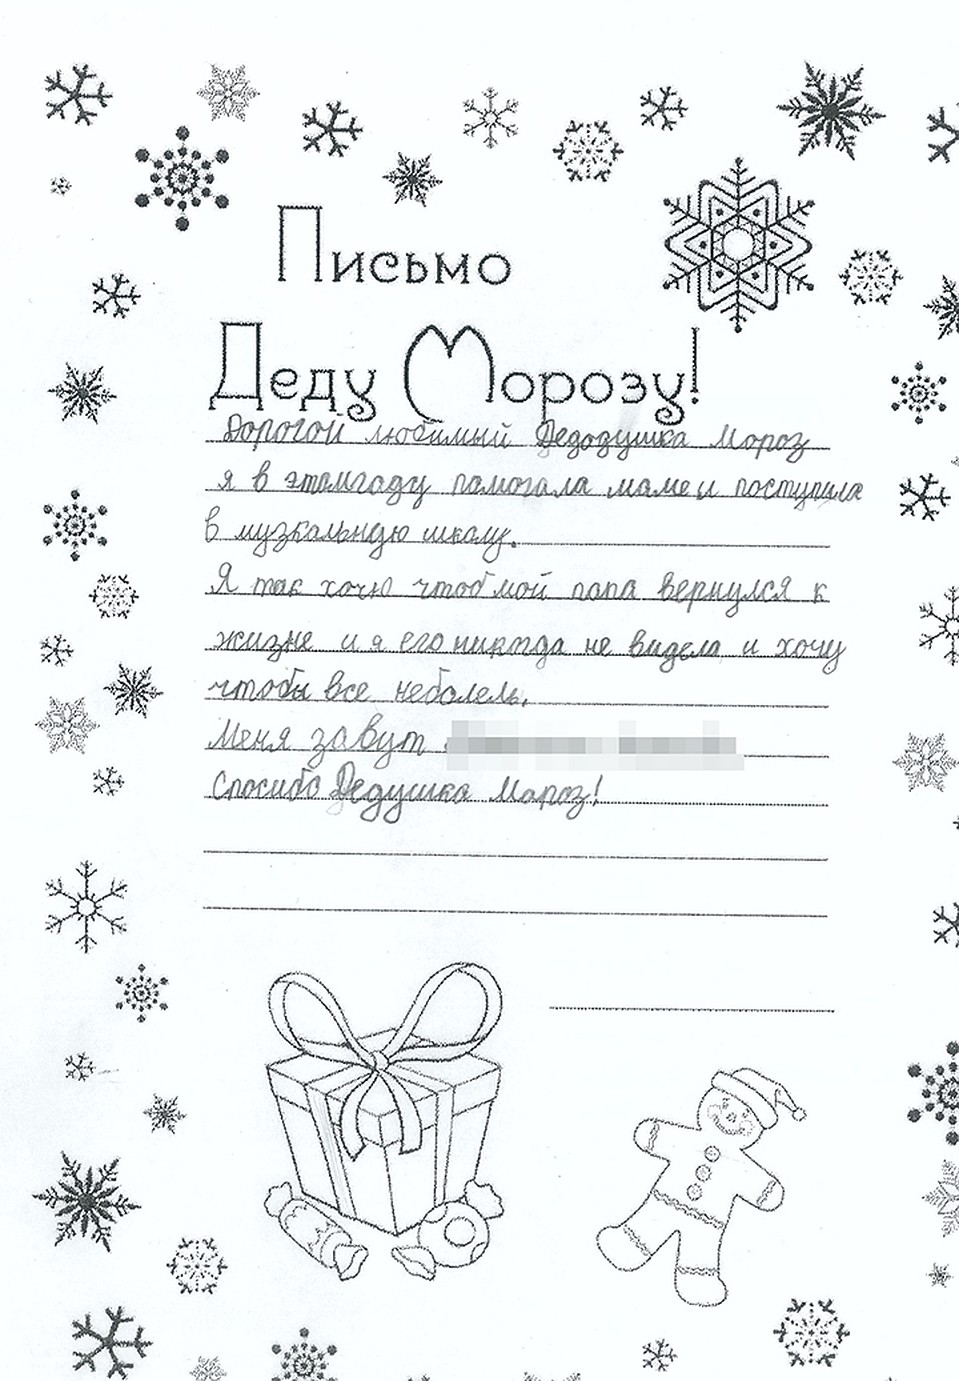 Письмо
Деду Морозу!
Дорогой любимий Дедодушка Мороз
я в этамгоду памогала маме и поступила
в музкальную шкалу.
Я так хочю чтоб мой папа вернулся к
жизне и я его никогда не видела и хочу
чтобы все неболели.
Меня завут
Спосибо Дедушка Мароз!